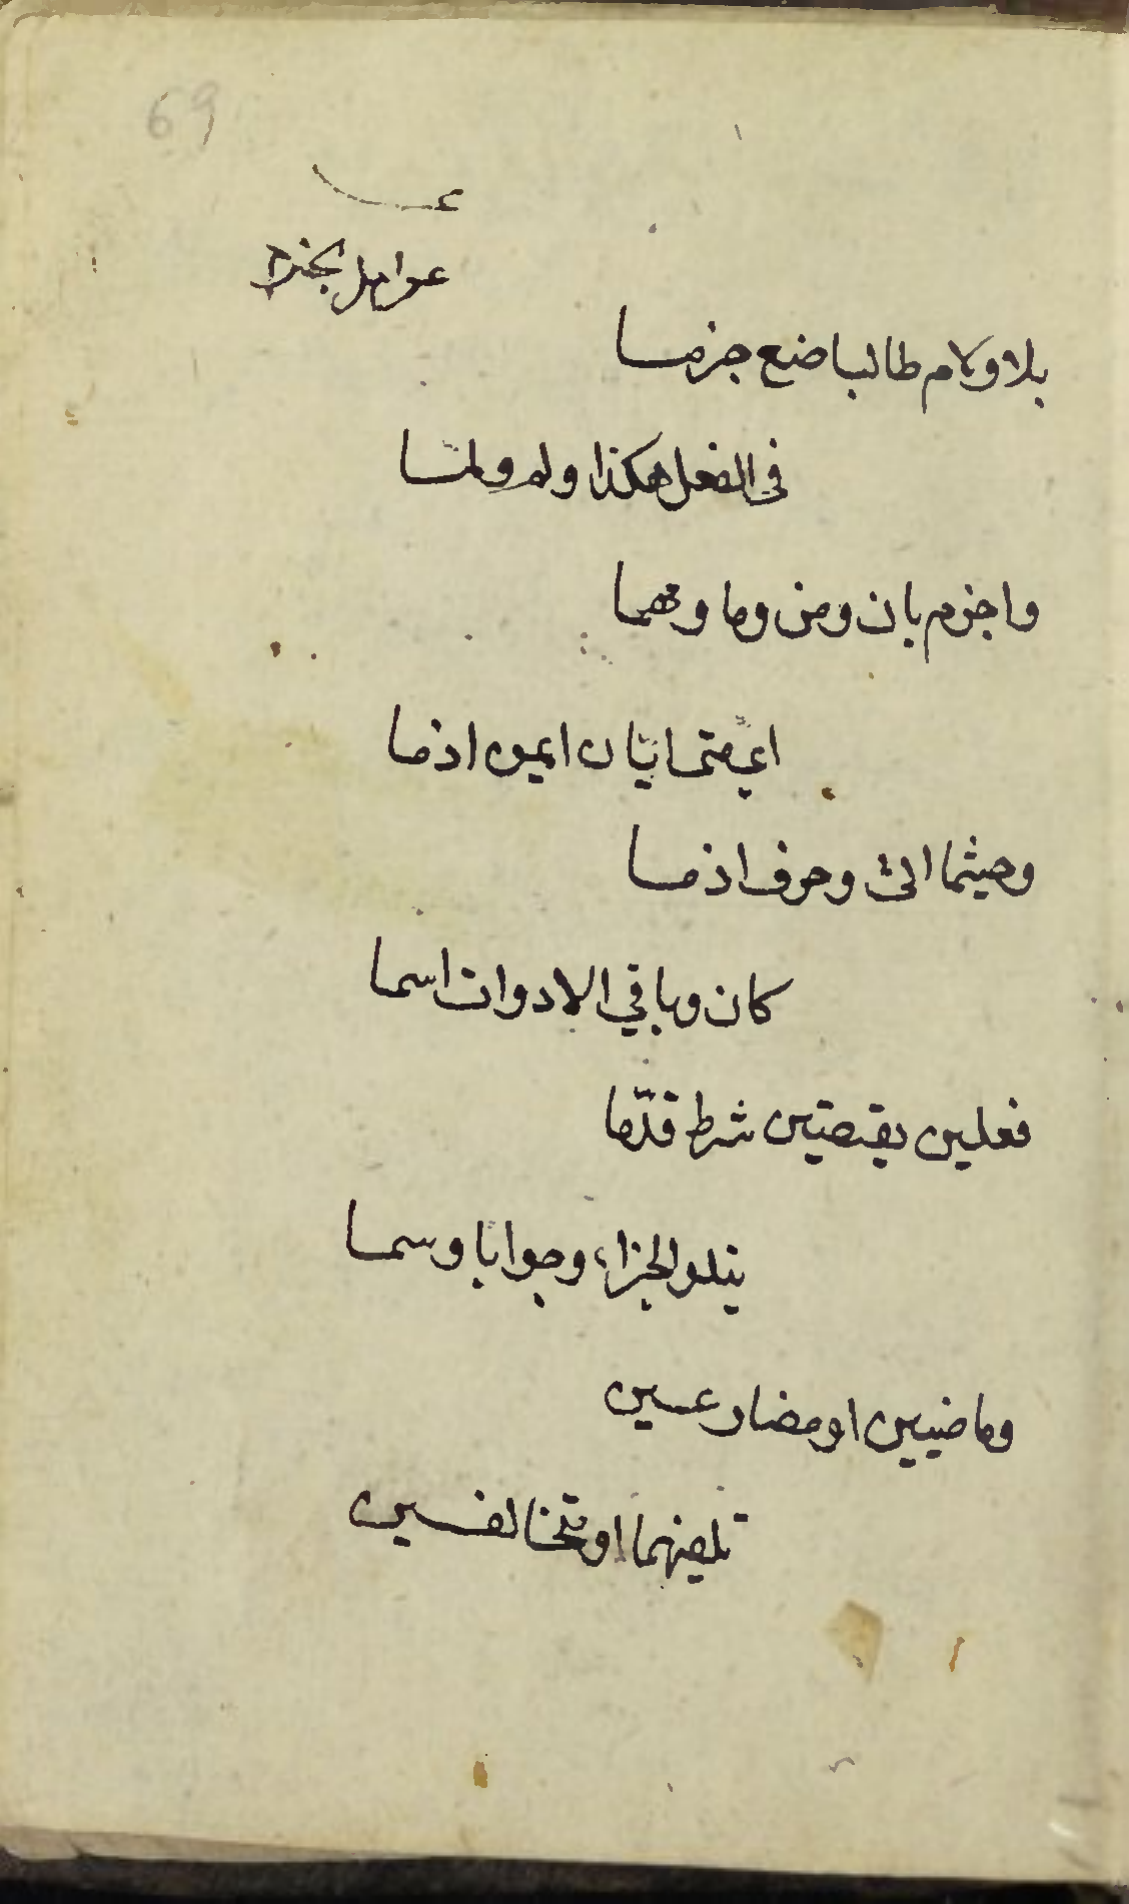 69
عوامل الجزم
بلا ولام طالبا ضع جزما
في الفعل هكذا ولم ولمّا
واجزم بان ومن وما ومهما
ايّ متى ايّان اين اذما
وحيثما انى وحرف اذما
كان وباقي الادوات اسما
فعلين يقتضين شرط قدّما
يتلو الجزاء وجوابا وسما
وماضيين او مضارعين
تلفيهما او متخالفين